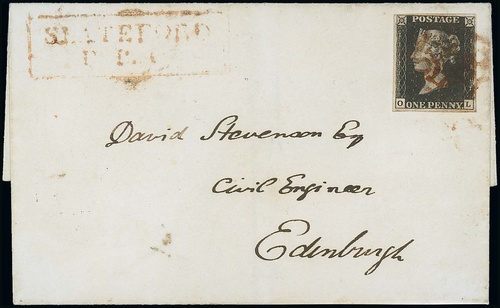 SLATEFORD
POSTAGE
O ONE PENNY L
David Stevenson Esq
Civil Engineer
Edinburgh